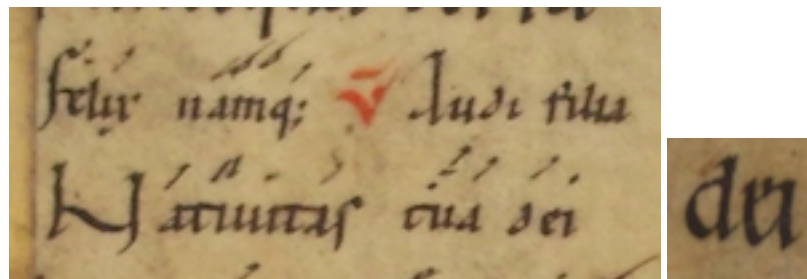 felix namq; V Audi filia
Nativitas tua dei
dei